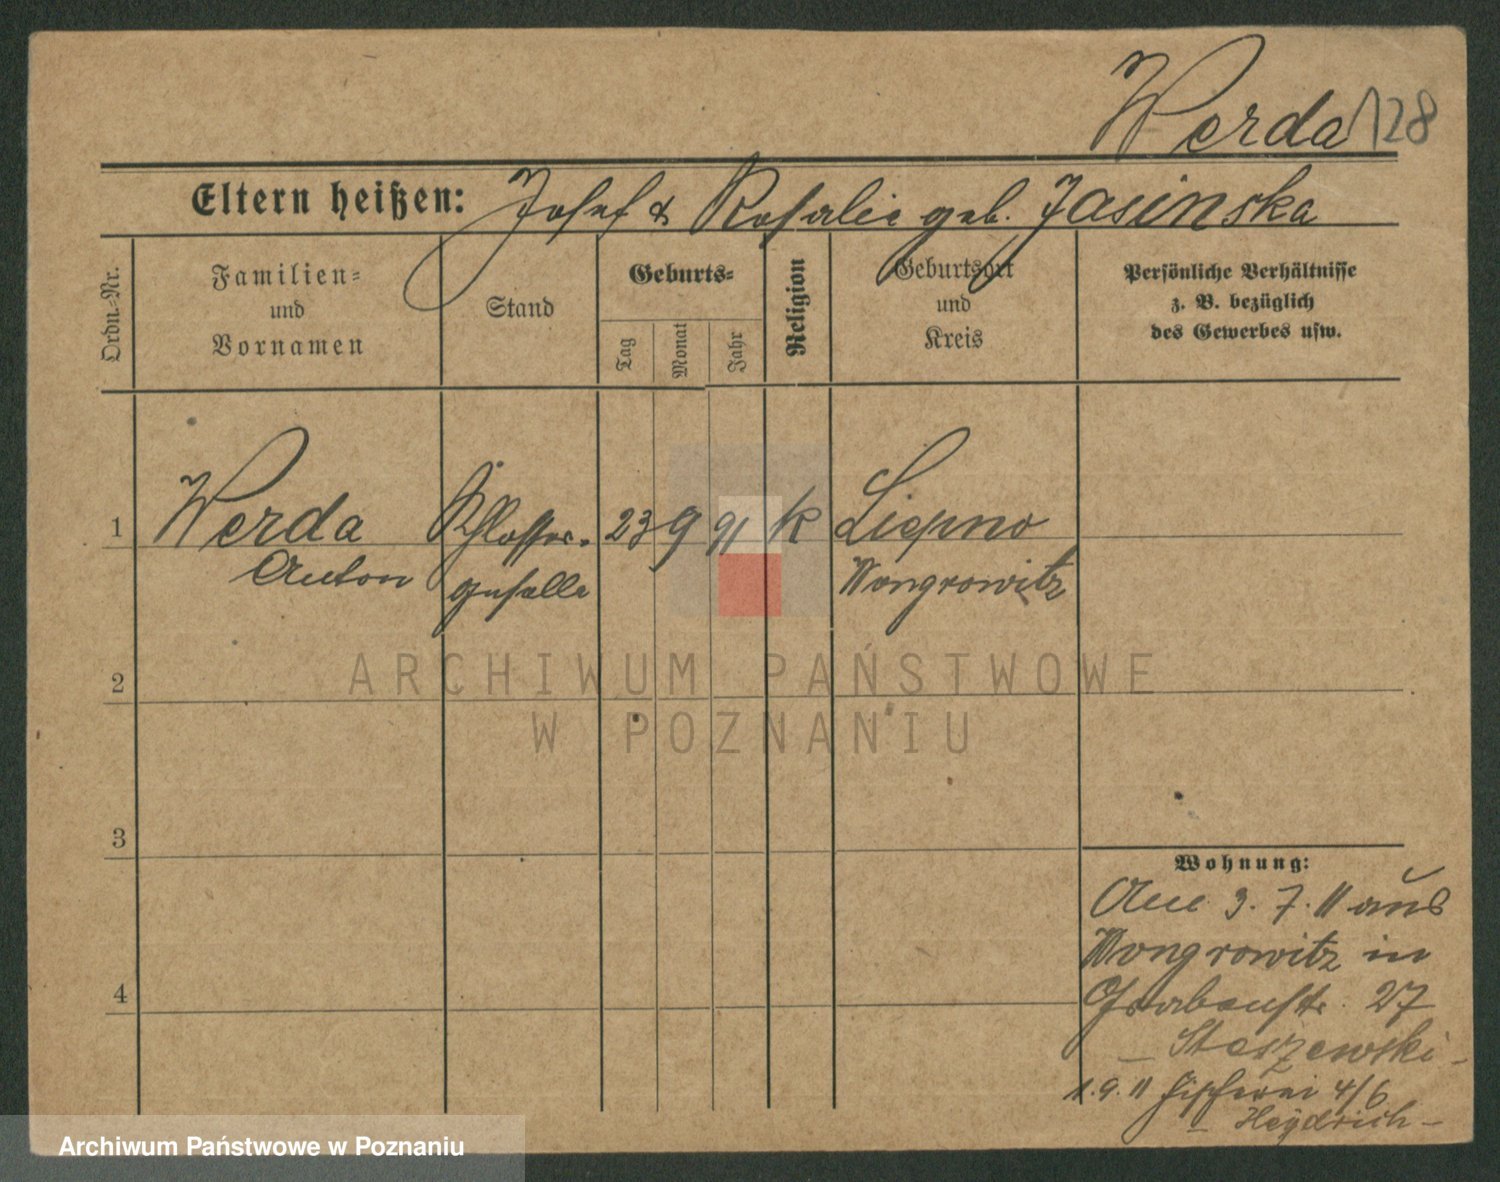 Werda 128
Eltern heißen: Josef & Rosalie geb. Jasinska
Ordn.-Nr.
Familien-
und
Vornamen
Stand
Geburts-
Tag
Monat
Jahr
Religion
Geburtsort
und
Kreis
Persönliche Verhältnisse
z. B. bezüglich
des Gewerbes usw.
1 Werda Schlosser- 23 9 91 k Liepno
Anton geselle Wongrowitz
2
ARCHIWUM PAŃSTWOWE
W POZNANIU
3
Wohnung:
Am 3.7.11 aus
Wongrowitz in
4
Grabenstr. 27
– Staszewski –
1.9.11 Fischerei 4/6
– Heydrich –
Archiwum Państwowe w Poznaniu